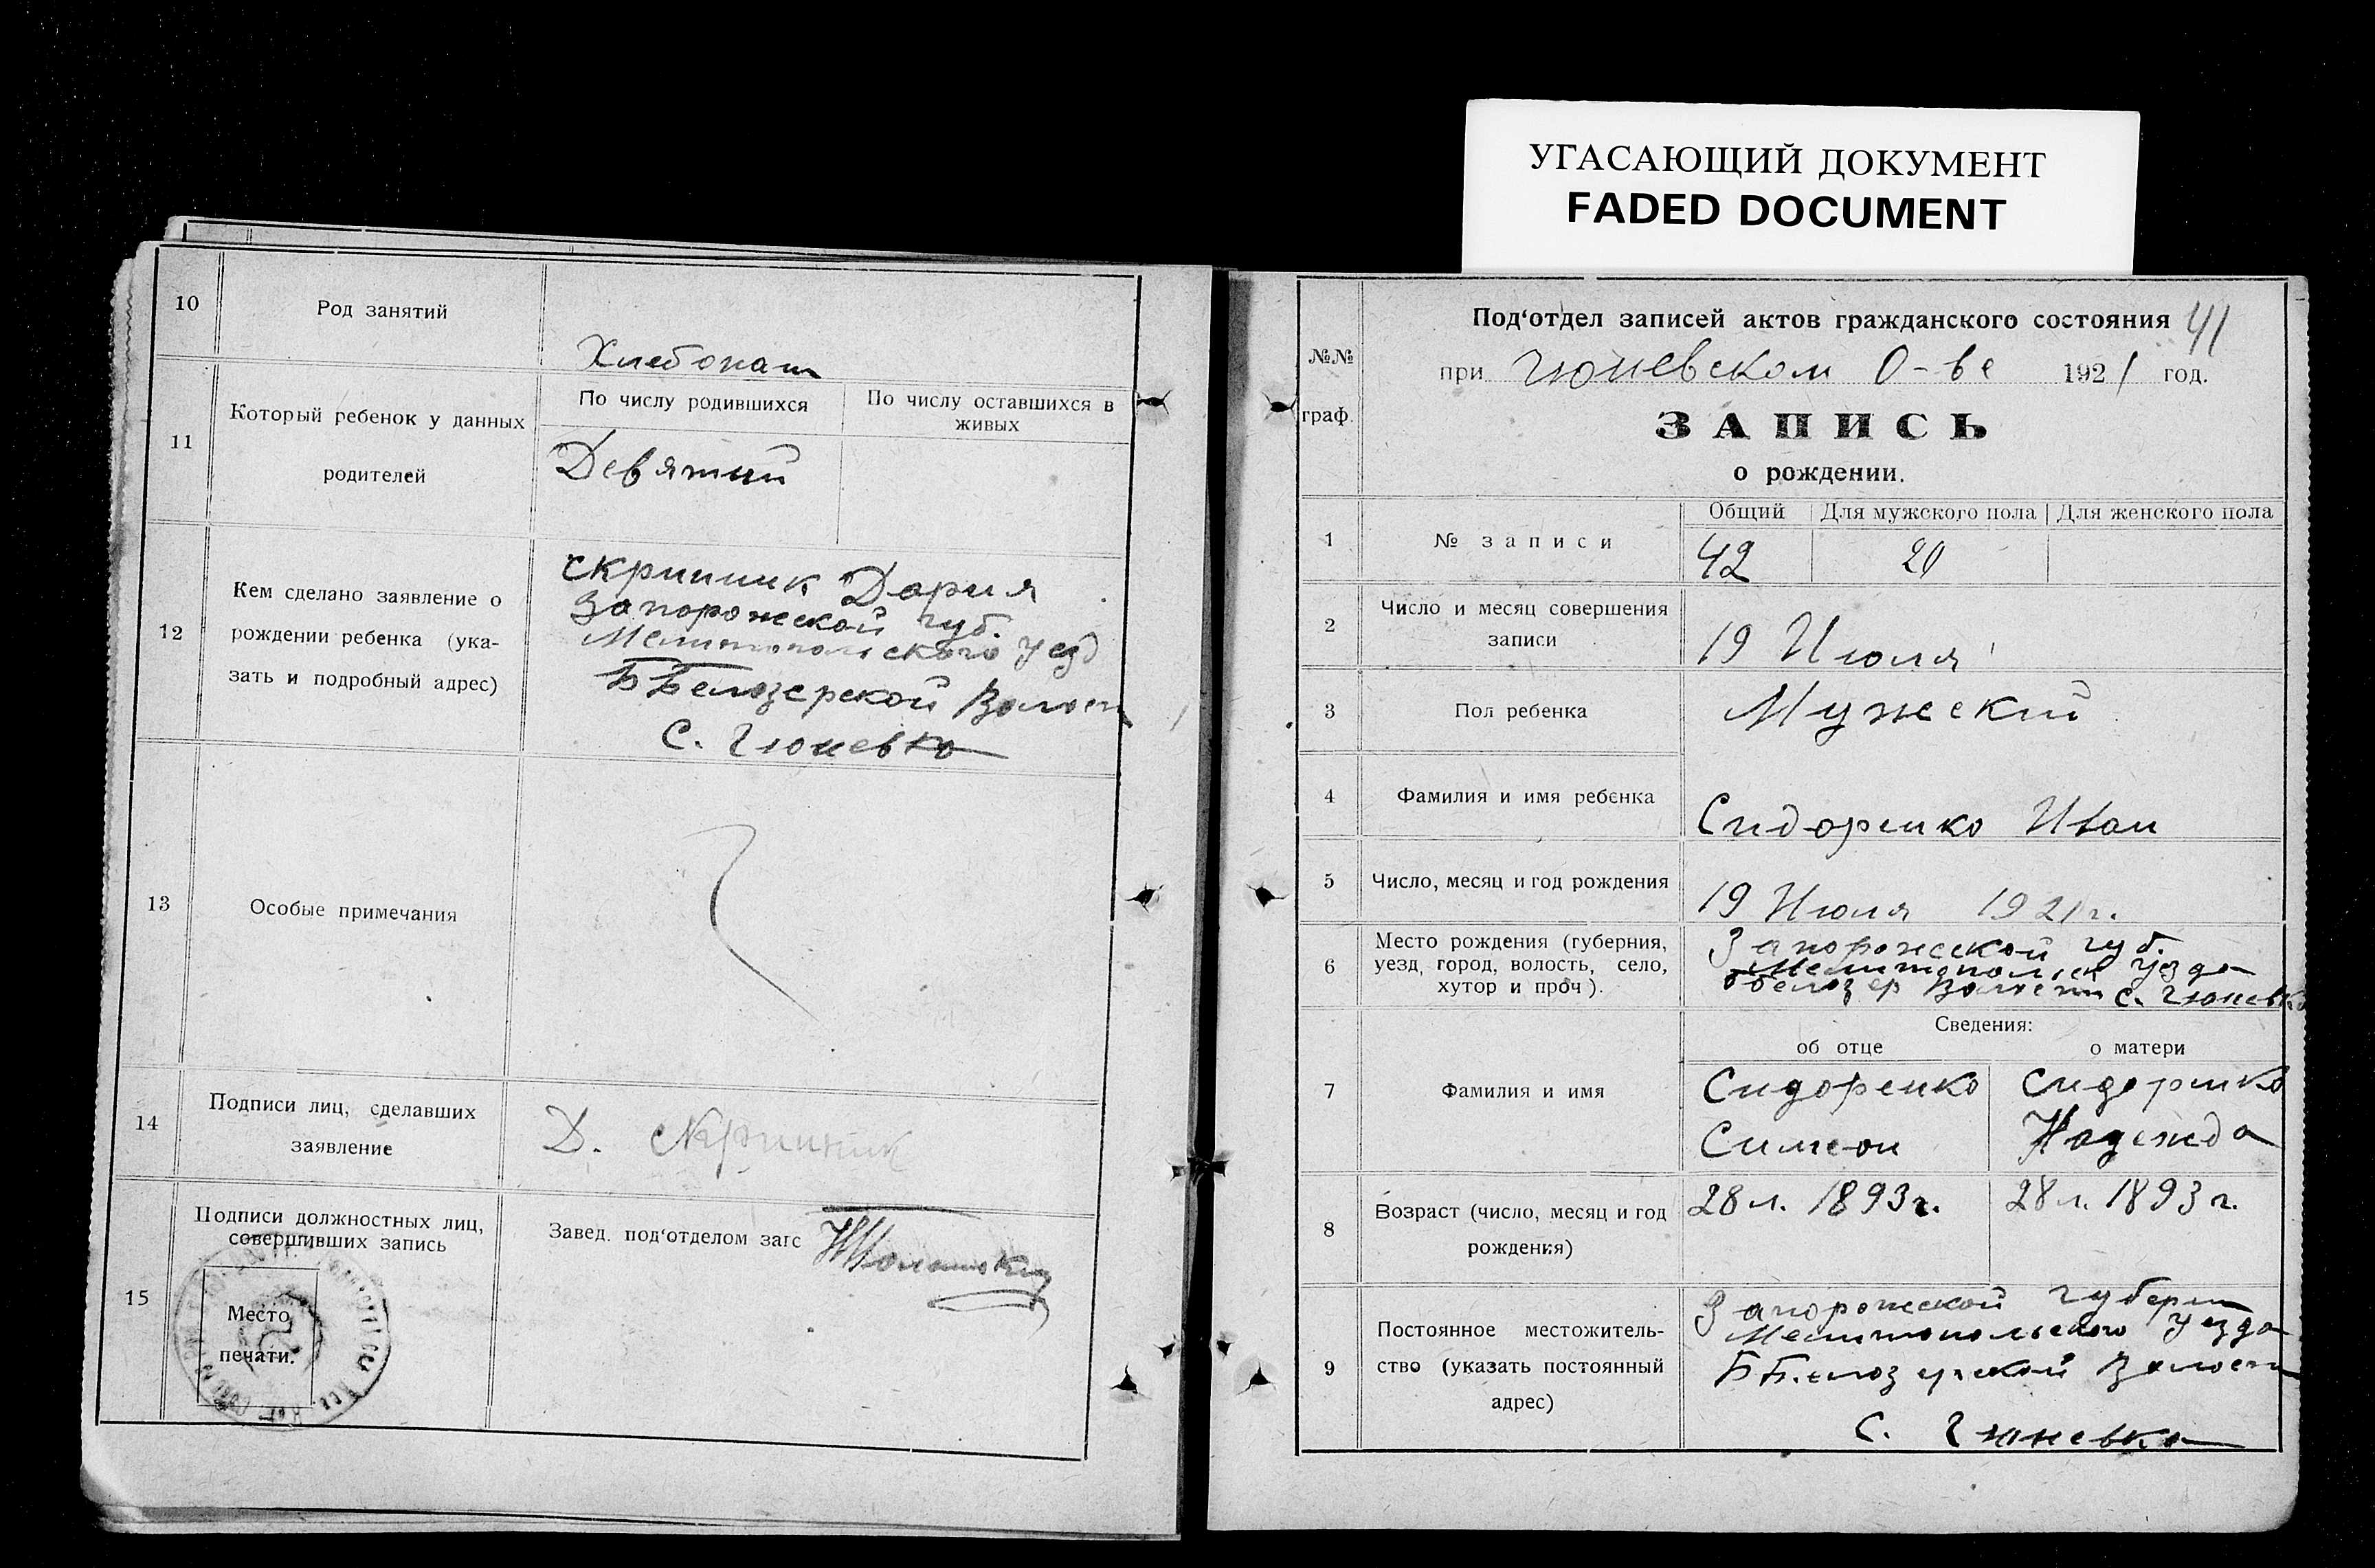 УГАСАЮЩИЙ ДОКУМЕНТ
FADED DOCUMENT
10
Род занятий
Хлебопаш
11
Который ребенок у данных
родителей
По числу родившихся
По числу оставшихся в
живых
Девятий
12
Кем сделано заявление о
рождении ребенка (ука-
зать и подробный адрес)
Скрипник Дария
Запорожской губ.
Мелитопольского Уезд
ББелозерской Волости
С. Гюневко
13
Особые примечания
14
Подписи лиц, сделавших
заявление
Д. Скрипник
15
Подписи должностных лиц,
совершивших запись
Место
печати.
Завед. под‘отделом загс
№№
граф.
Под‘отдел записей актов гражданского состояния 41
при Гюневском О-ве 1921 год.
ЗАПИСЬ
о рождении.
1
№ записи
Общий
Для мужского пола
Для женского пола
42
20
2
Число и месяц совершения
записи
19 Июля
3
Пол ребенка
Мужский
4
Фамилия и имя ребенка
Сидоренко Иван
5
Число, месяц и год рождения
19 Июля 1921 г.
6
Место рождения (губерния,
уезд, город, волость, село,
хутор и проч).
Запорожской губ.
Мелитопольск Уезда
ббелозер Волости с. Гюневка
Сведения:
об отце
о матери
7
Фамилия и имя
Сидоренко
Симеон
Сидоренко
Надежда
8
Возраст (число, месяц и год
рождения)
28 л. 1893 г.
28 л. 1893 г.
9
Постоянное местожитель-
ство (указать постоянный
адрес)
Запорожской Губерн
Мелитопольского Уезда
ББелозерской Волости
С. Гюневка